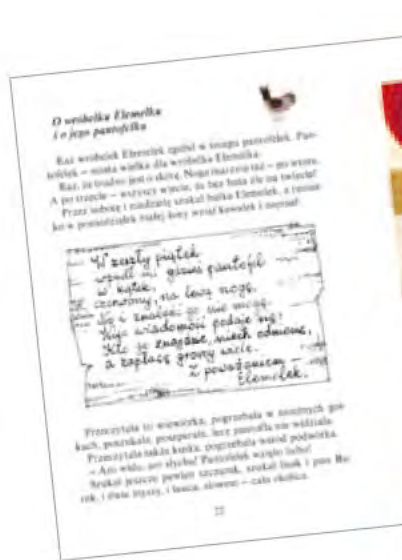 O wróbelku Elemelku
i o jego pantofelku
Raz wróbelek Elemelek zgubił w śniegu pantofelek. Pan-
tofelek – strata wielka dla wróbelka Elemelka.
Raz, że trudno jest o skórę. Noga marznie też – po wtóre.
A po trzecie – wszyscy wiecie, że bez buta źle na świecie!
Przez sobotę i niedzielę szukał butka Elemelek, a
w poniedziałek małej kory wziął kawałek i napisał:
W zeszły piątek
wpadł mi gdzieś pantofel
w kątek,
czerwony, na lewą nogę.
No i znaleźć go nie mogę.
Tuje wiadomość podaję tę:
Kto go znajdzie, niech odniesie,
a zapłacę grosy
Z poważaniem –
Elemelek.
Przeczytała to wiewiórka, pogrzebała w
poszukała, poszperała, lecz pantofla nie widziała.
Przeczytała także kurka, pogrzebała wśród podwórka.
– Ani widu, ani słychu! Pantofelek wzięło licho!
Szukał jeszcze pewien szczurek, szukał Bu-
rek, i dwie myszy, i słowem – cała okolica.
22